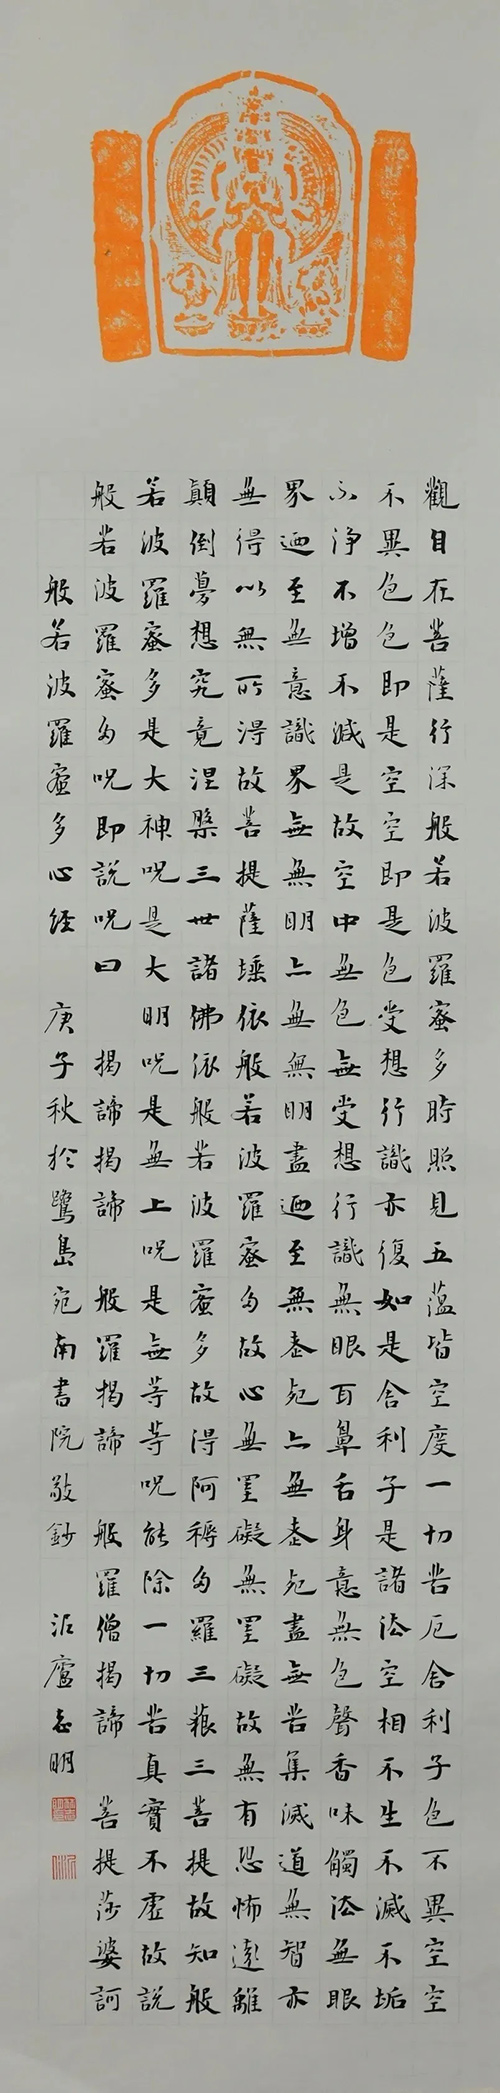 觀自在菩薩行深般若波羅蜜多時照見五蘊皆空度一切苦厄舍利子色不異空空
不異色色即是空空即是色受想行識亦復如是舍利子是諸法空相不生不滅不垢
不淨不增不減是故空中無色無受想行識無眼耳鼻舌身意無色聲香味觸法無眼
界迺至無意識界無無明亦無無明盡迺至無老死亦無老死盡無苦集滅道無智亦
無得以無所得故菩提薩埵依般若波羅蜜多故心無罣礙無罣礙故無有恐怖遠離
顛倒夢想究竟涅槃三世諸佛依般若波羅蜜多故得阿耨多羅三藐三菩提故知般
若波羅蜜多是大神呪是大明呪是無上呪是無等等呪能除一切苦真實不虛故說
般若波羅蜜多呪即說呪曰 揭諦揭諦 般羅揭諦 般羅僧揭諦 菩提莎婆訶
般若波羅蜜多心經 庚子秋於鷺島宛南書院敬鈔 廬志明